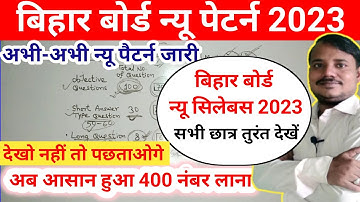 बिहार बोर्ड न्यू पेटर्न 2023
अभी-अभी न्यू पैटर्न जारी
Total No
of Question
Objective
Questions
100
Short Answer
Type Question
30
Long Question
8
बिहार बोर्ड
न्यू सिलेबस 2023
सभी छात्र तुरंत देखें
देखो नहीं तो पछताओगे
अब आसान हुआ 400 नंबर लाना